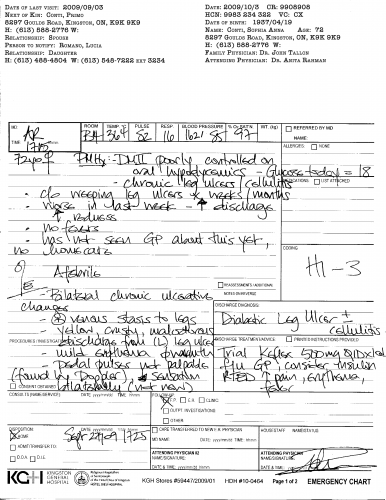 DATE OF LAST VISIT: 2009/09/03
NEXT OF KIN: CONTI, PRIMO
8297 GOULDS ROAD, KINGSTON, ON, K9K 9K9
H: (613) 555-2776 W:
RELATIONSHIP: SPOUSE
PERSON TO NOTIFY: ROMANO, LUCIA
RELATIONSHIP: DAUGHTER
H: (613) 485-4804 W: (613) 548-7222 EXT 3234
DATE: 2009/10/3 CR: 9908908
HCN: 9983 234 322 VC: CX
DATE OF BIRTH: 1937/04/19
NAME: CONTI, SOPHIA ANNA AGE: 72
8297 GOULDS ROAD, KINGSTON, ON, K9K 9K9
H: (613) 555-2776 W:
FAMILY PHYSICIAN: DR. JOHN TALLON
ATTENDING PHYSICIAN: DR. ANITA RAHMAN
MD ROOM TEMP °C PULSE RESP BLOOD PRESSURE % O2 SAT WT. (kg)
REFERRED BY MD
NAME:
AR 36.4 82 16 162/85 97
TIME 1715
ALLERGIES: NONE
72yo F PMHx: DMII poorly controlled on
oral hypoglycemics - Glucose today = 18
- chronic leg ulcers/cellulitis
MEDICATIONS LIST ATTACHED
- c/o weeping leg ulcers x weeks/months
- worse in last week - ↑ discharge
↑ redness
- no fevers
- has not seen GP about this yet,
no homecare
CODING
H1-3
O/ Afebrile
REASSESSMENTS / ADDITIONAL
NOTES ON REVERSE
- Bilateral chronic ulcerative
changes
DISCHARGE DIAGNOSIS:
Diabetic Leg Ulcer +
cellulitis
- venous stasis to legs
- yellow, crusty, malodorous
discharge from (L) leg ulcer
PROCEDURES / INVESTIGATIONS
DISCHARGE TREATMENT/ADVICE PRINTED INSTRUCTIONS PROVIDED
- mild erythema
- pedal pulses not palpable
(found by Doppler), ↓ sensation
bilaterally (not new)
Trial Keflex 500mg QID x 10d
f/u GP, consider insulin
RTED ↑ pain, erythema
fever
CONSENT OBTAINED
CONSULT TO (NAME/SERVICE) DATE (yyyy/mm/dd) TIME hh:mm
FOLLOW-UP
F.P. E.R. CLINIC
OUTPT. INVESTIGATIONS
OTHER
DISPOSITION DATE (yyyy/mm/dd) TIME hh:mm
HOME Sept 27/09 1725
ADMIT/TRANSFER TO:
D.O.A. DIE.
CARE TRANSFERRED TO NEW E.R. PHYSICIAN
MD NAME DATE (yyyy/mm/dd) TIME hh:mm
HOUSESTAFF NAME/STATUS:
ATTENDING PHYSICIAN #2
NAME/SIGNATURE:
DATE & TIME (yyyy/mm/dd hh:mm)
ATTENDING PHYSICIAN #1
NAME/SIGNATURE:
DATE & TIME (yyyy/mm/dd hh:mm)
KGH KINGSTON GENERAL HOSPITAL
HOTEL DIEU HOSPITAL
KGH Stores #59447/2009/01 HDH #10-0464 Page 1 of 2 EMERGENCY CHART